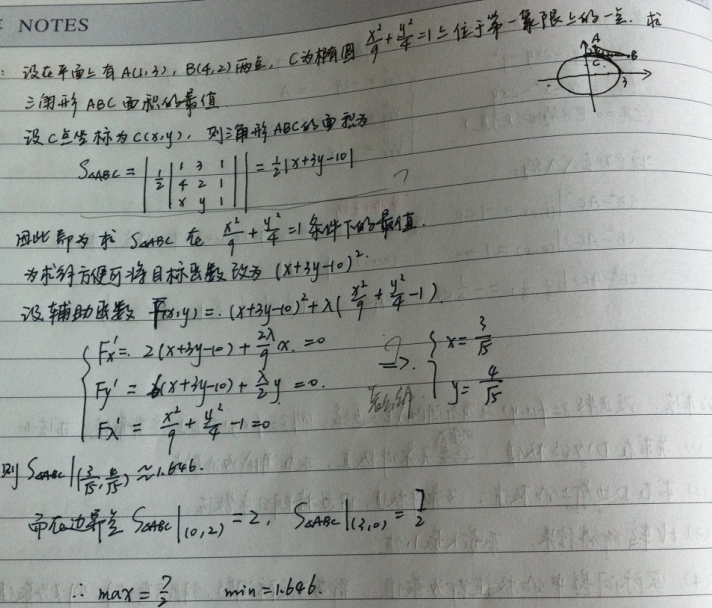 NOTES
: 设在平面上有 A(1,3), B(4,2) 两点, C为椭圆 x²/9 + y²/4 = 1 上位于第一象限上的一点. 求
三角形 ABC 面积的最值
设 C点坐标为 C(x,y), 则三角形ABC的面积为
S△ABC = | 1/2 | 1 3 1 | | = 1/2 |x+3y-10|
4 2 1
x y 1
?
因此即为求 S△ABC 在 x²/9 + y²/4 = 1 条件下的最值.
为求得方便可将目标函数改为 (x+3y-10)².
设辅助函数 F(x,y) = (x+3y-10)² + λ( x²/9 + y²/4 - 1 )
Fx' = 2(x+3y-10) + 2λ/9 x = 0
Fy' = 6(x+3y-10) + λ/2 y = 0.
Fλ' = x²/9 + y²/4 - 1 = 0
? ⇒
x = 3/√5
y = 4/√5
则 S△ABC |(3/√5, 4/√5) ≈ 1.646.
而在边界差 S△ABC |(0,2) = 2, S△ABC |(3,0) = 7/2
∴ max = 7/2 min = 1.646.
A
B
C
3